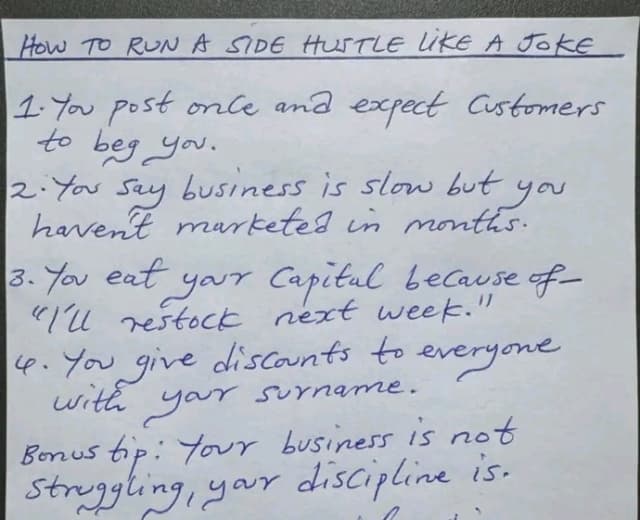 HOW TO RUN A SIDE HUSTLE LIKE A JOKE
1. You post once and expect Customers
to beg you.
2. You say business is slow but you
haven't marketed in months.
3. You eat your Capital because of—
"I'll restock next week."
4. You give discounts to everyone
with your surname.
Bonus tip: Your business is not
struggling, your discipline is.